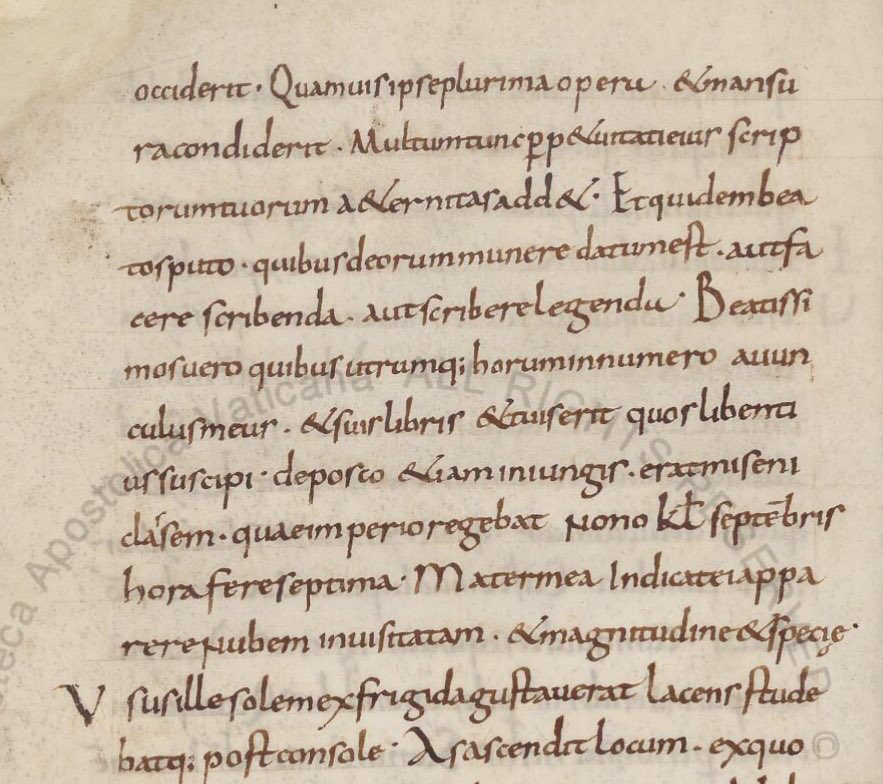 occiderit · Quamuis ipse plurima operu . & mansu
ra condiderit . Multum tunc ꝑp&uitati eius scrip
torum tuorum a&ernitas add& · Et quidem bea
tos puto · quibus deorum munere datum est . aut fa
cere scribenda . aut scribere legendu · Beatissi
mos uero quibus utrumq; horum in numero auun
culus meus . & suis libris & tuis erit quos libenti
us suscipi · deposco &iam iniungis . erat miseni
clasem . quae imperio regebat Nono kł septēbris
hora fere septima · Mater mea Indicat ei appa
rere Nubem inuisitatam . & magnitudine & specie ·
V susille solem ex frigida gustauerat Iacens stude
batq; post console · Asascendit locum . ex quo